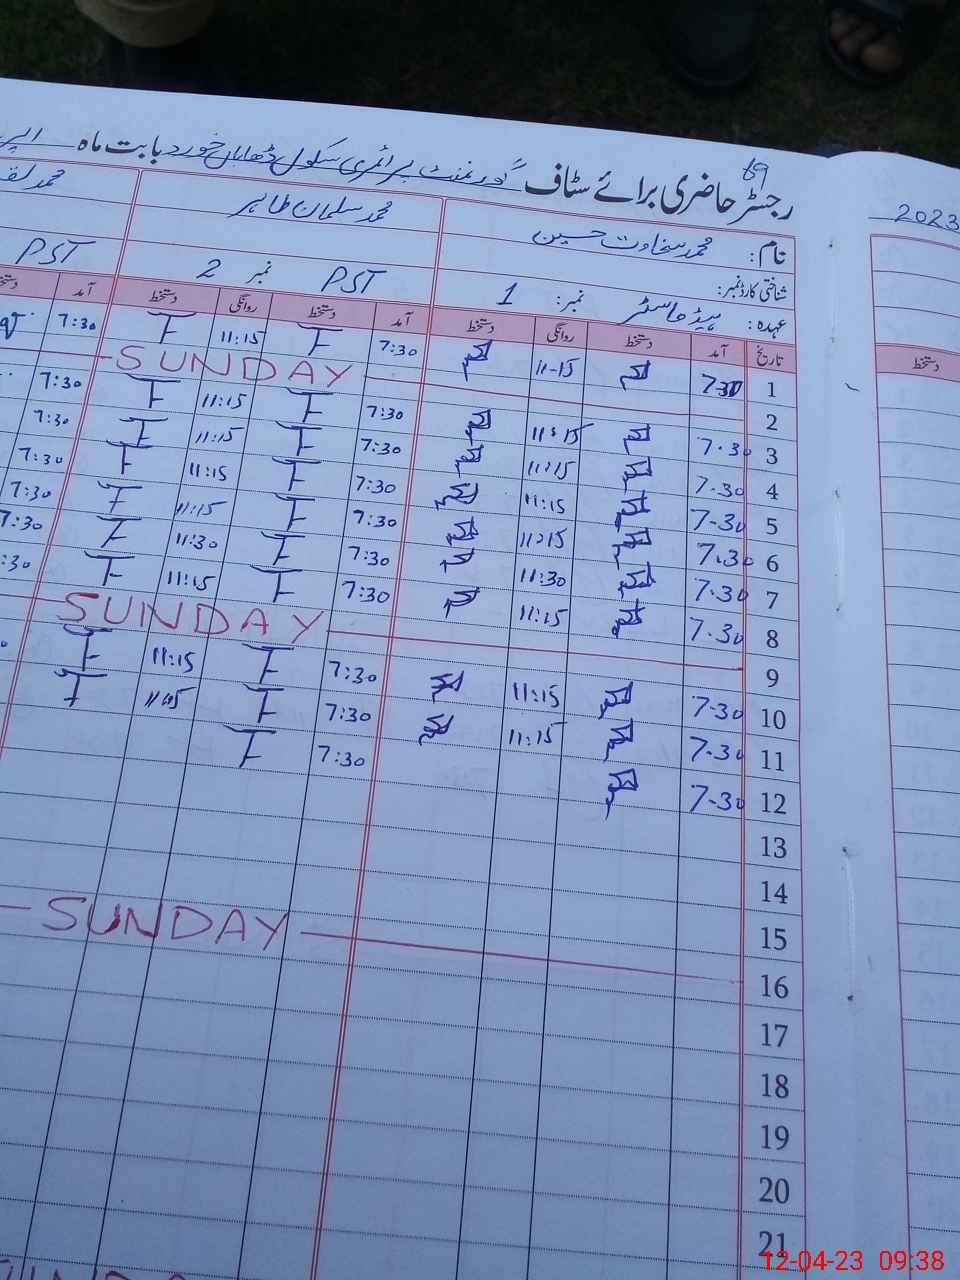 69
رجسٹر حاضری برائے سٹاف گورنمنٹ پرائمری سکول ڈھاباں خورد بابت ماہ
2023
نام: محمد سخاوت حسین
محمد سلمان طاہر
محمد
شناختی کارڈ نمبر:
عہدہ: ہیڈ ماسٹر نمبر: 1
PST نمبر 2
PST
تاریخ آمد دستخط روانگی دستخط آمد دستخط روانگی دستخط آمد دستخط
دستخط
1 7-30 11-15 7:30 11:15 7:30
2 SUNDAY
3 7.30 11:15 7:30 11:15 7:30
4 7.30 11:15 7:30 11:15 7:30
5 7-30 11:15 7:30 11:15 7:30
6 7.30 11:15 7:30 11:15 7:30
7 7.30 11:30 7:30 11:30 7:30
8 7.30 11:15 7:30 11:15 :30
9 SUNDAY
10 7-30 11:15 7:30 11:15
11 7-30 11:15 7:30 11:15
12 7-30 7:30
13
14
15
16 SUNDAY
17
18
19
20
21
12-04-23 09:38